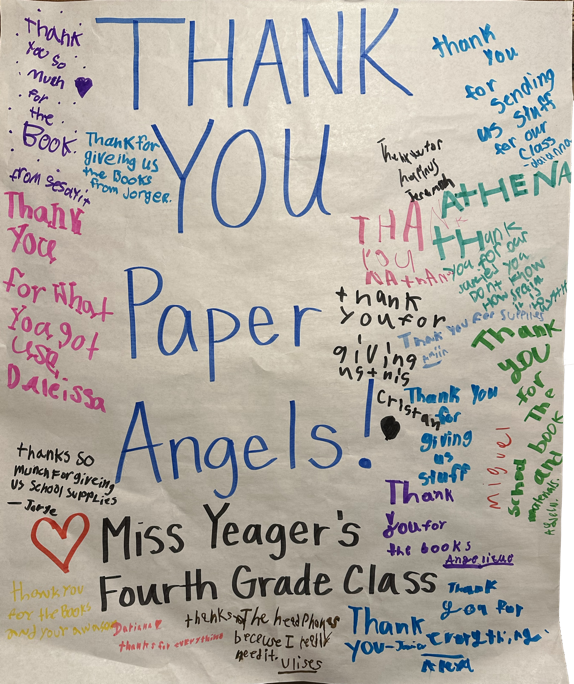 THANK
YOU
Paper
Angels!
Miss Yeager's
Fourth Grade Class
Thank
You so
much
for
the
Book
from sesayit
Thank for
giveing us
the Books
from Jorger.
Thank
You
for What
You got
use,
Daleissa
thanks so
munch For giveing
us School supplies
— Jorge
thank You
for the Books
and your
Dariana
thanks for everything
thanks The headphones
because I really
need it.
Ulises
thank
you
for
sending
us stuff
for our
class
-daianna
Jeremiah
ATHENA
THANK
YOU
NATHAN
thank
you for our
Dont you know
thank
you for
giving
us this
Cristan
Thank you for supplies
Thank You
for
giving
us
stuff
Miguel
Thank
you
for
The
school
and book
materials.
Thank
you for
the books
Angelique
Thank
you-
Thank
you for
everything.